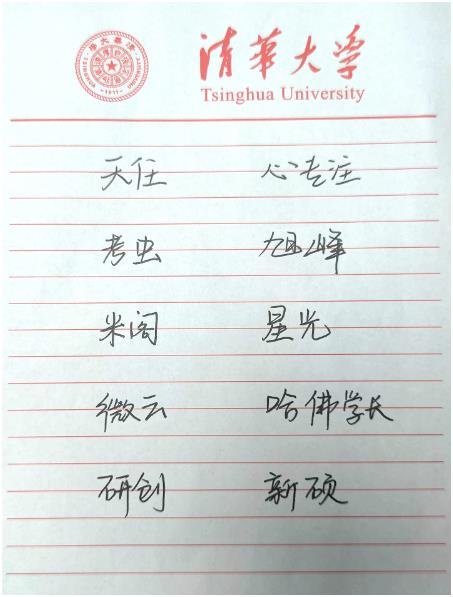 清华大学
Tsinghua University
天任 心专注
考虫 旭峰
米阁 星光
微云 哈佛学长
研创 新硕